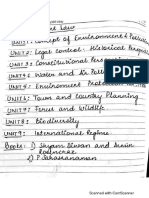 Law
UNIT 1: Concept of Environment & Pollution
UNIT 2: Legal control: Historical Perspective
UNIT 3: Constitutional Perspective
UNIT 4: Water and Air Pollution
UNIT 5: Environment
UNIT 6: Town and Country Planning
UNIT 7: Forest and Wildlife
UNIT 8: Biodiversity
UNIT 9: International Regime
Books: 1) Shyam Diwan and Armin Rosencranz
2) P. Jaharananan
Scanned with CamScanner